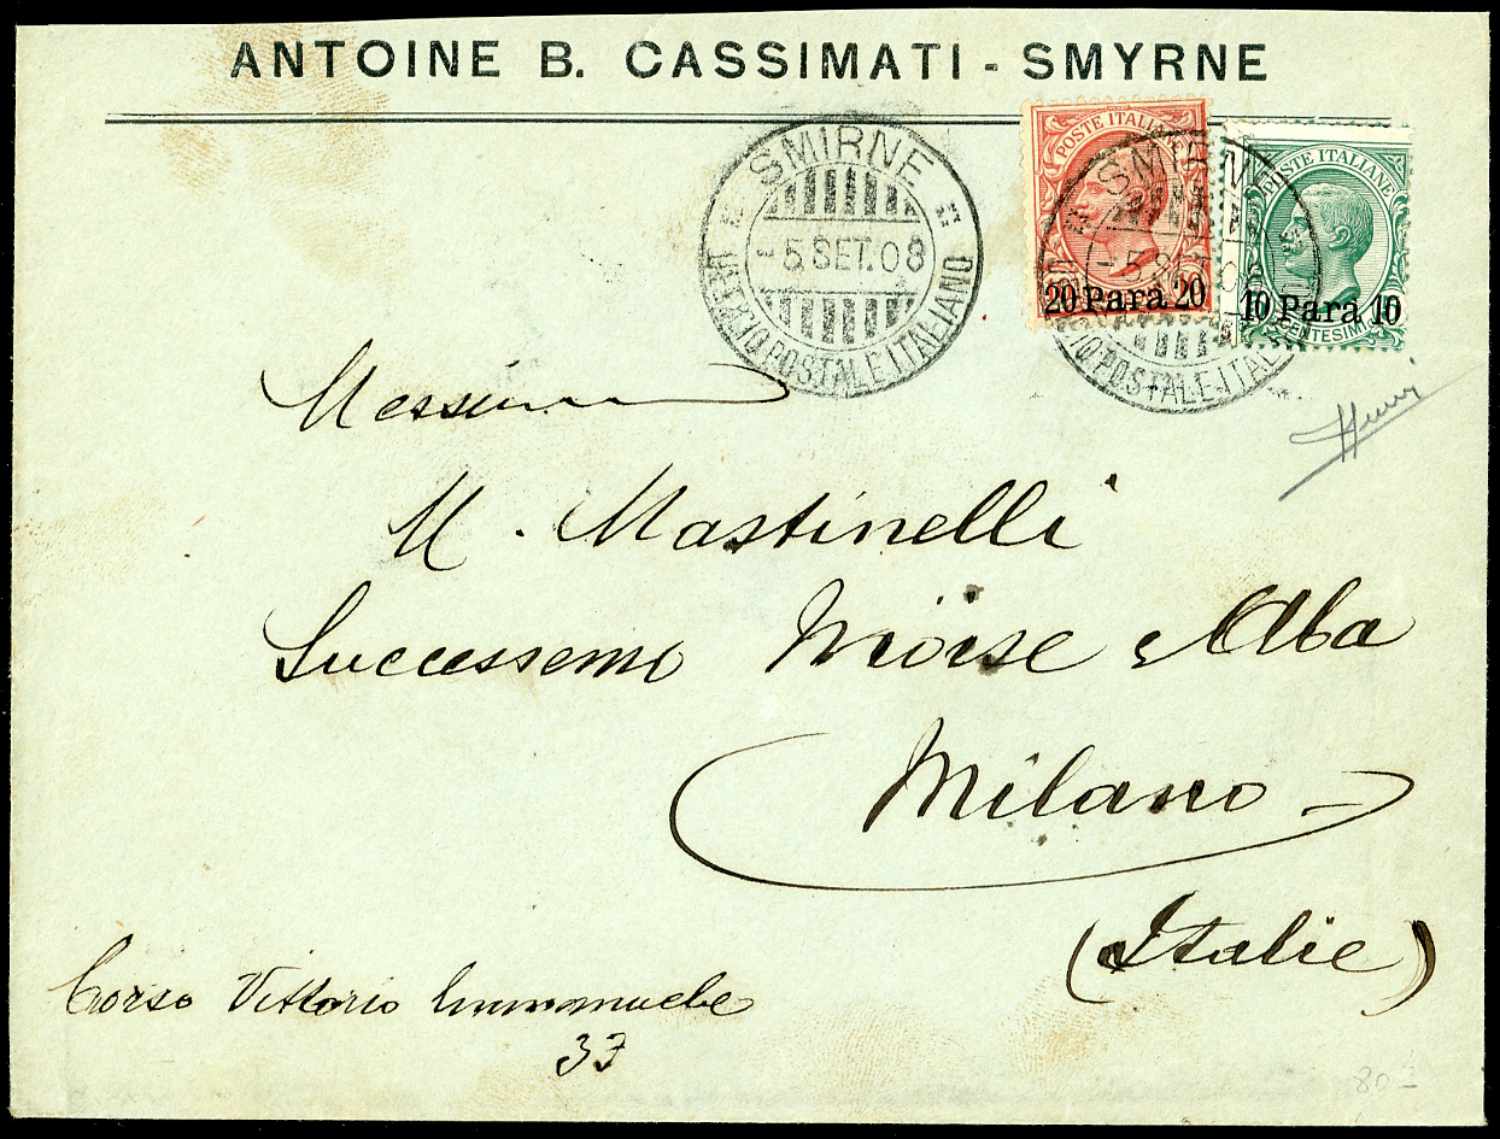 ANTOINE B. CASSIMATI - SMYRNE
SMIRNE
- 5. SET. 08
UFFICIO POSTALE ITALIANO
POSTE ITALIANE
20 Para 20
POSTE ITALIANE
10 Para 10
CENTESIMI
SMIRN
- 5. SET. 0
POSTALE ITAL
M. Mastinelli
Moïse Alba
Milano
(Italie)
Corso Vittorio Emmanuele
37
80 -